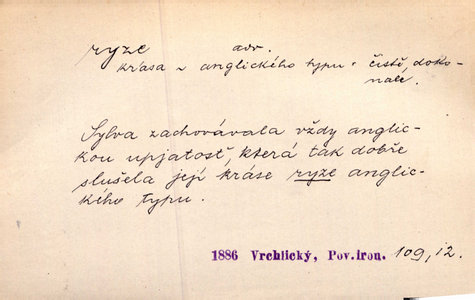 ryze adv.
krása r anglického typu: čistě, doko-
nale.
Sylva zachovávala vždy anglic-
kou upjatost, která tak dobře
slušela její kráse ryze anglic-
kého typu.
1886 Vrchlický, Pov.iron. 109,12.